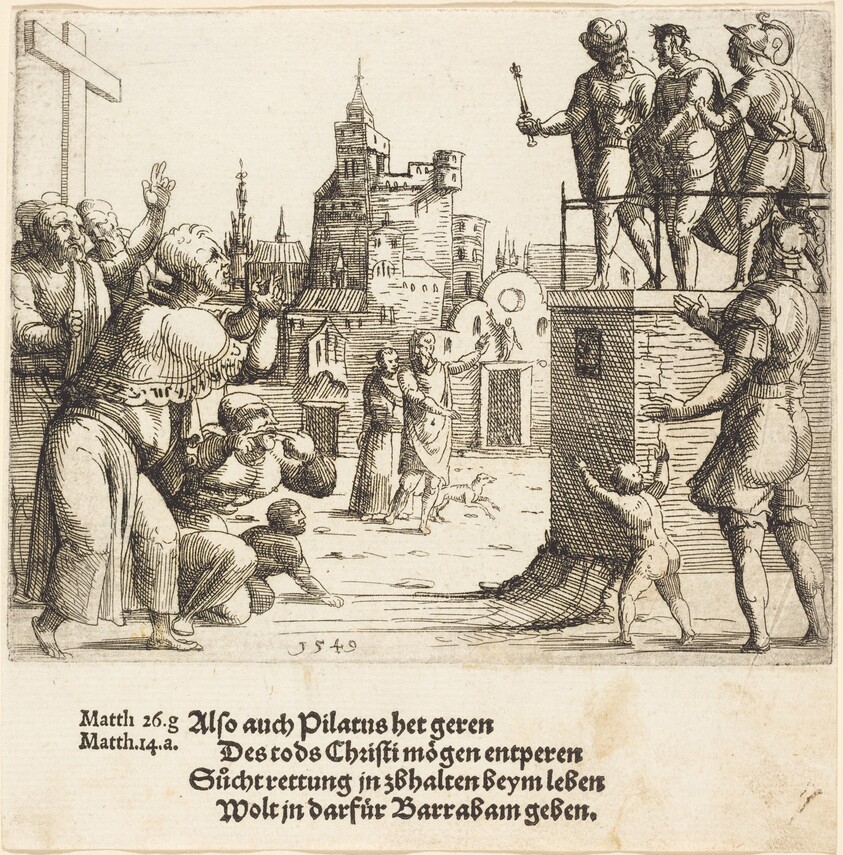 1549
Matth 26.g Also auch Pilatus het geren
Matth.14.a. Des tods Christi mögen entperen
Sůcht rettung jn zbhalten beym leben
Wolt jn darfür Barrabam geben.